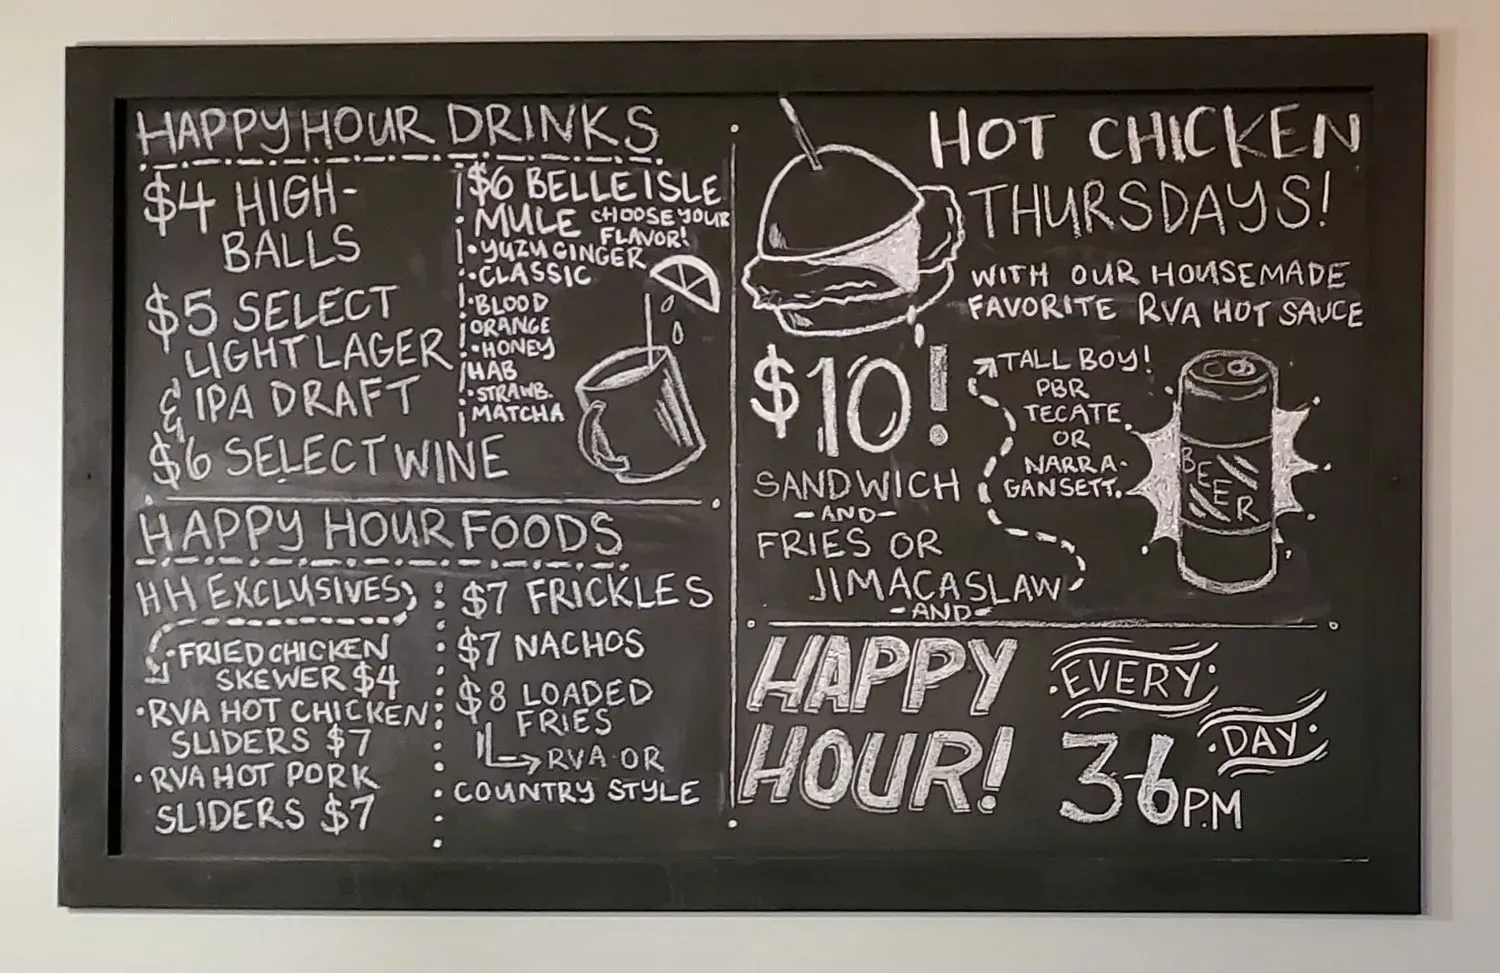 HAPPY HOUR DRINKS
$4 HIGH-
BALLS
$5 SELECT
LIGHT LAGER
& IPA DRAFT
$6 SELECT WINE
$6 BELLE ISLE
MULE CHOOSE YOUR
FLAVOR!
• YUZU GINGER
• CLASSIC
• BLOOD
ORANGE
• HONEY
HAB
• STRAWB.
MATCHA
HAPPY HOUR FOODS
HH EXCLUSIVES
• FRIED CHICKEN
SKEWER $4
• RVA HOT CHICKEN
SLIDERS $7
• RVA HOT PORK
SLIDERS $7
$7 FRICKLES
$7 NACHOS
$8 LOADED
FRIES
→ RVA OR
COUNTRY STYLE
HOT CHICKEN
THURSDAYS!
WITH OUR HOUSEMADE
FAVORITE RVA HOT SAUCE
$10!
SANDWICH
-AND-
FRIES OR
JIMACASLAW
-AND-
TALL BOY!
PBR
TECATE
OR
NARRA-
GANSETT.
BEER
HAPPY
HOUR!
EVERY
DAY
3-6 P.M